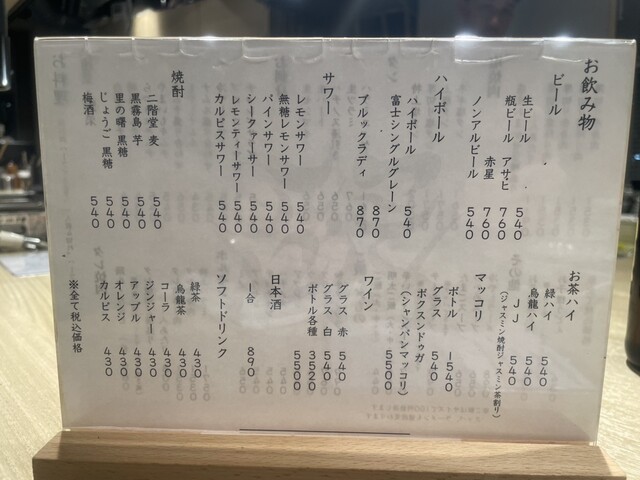 お飲み物
ビール
生ビール 540
瓶ビール アサヒ 760
赤星 760
ノンアルビール 540
ハイボール
ハイボール 540
富士シングルグレーン 870
ブルックラディ 870
サワー
レモンサワー 540
無糖レモンサワー 540
パインサワー 540
シークァーサー 540
レモンティーサワー 540
カルピスサワー 540
焼酎
二階堂 麦 540
黒霧島 芋 540
里の曙 黒糖 540
じょうご 黒糖 540
梅酒 540
お茶ハイ
緑ハイ 540
烏龍ハイ 540
JJ 540
(ジャスミン焼酎ジャスミン茶割り)
マッコリ
ボトル 1540
グラス 540
ボクスンドガ
(シャンパンマッコリ) 5500
ワイン
グラス 赤 540
グラス 白 540
ボトル各種 3520
5500
日本酒
一合 890
ソフトドリンク
緑茶 430
烏龍茶 430
コーラ 430
ジンジャー 430
アップル 430
オレンジ 430
カルピス 430
※全て税込価格